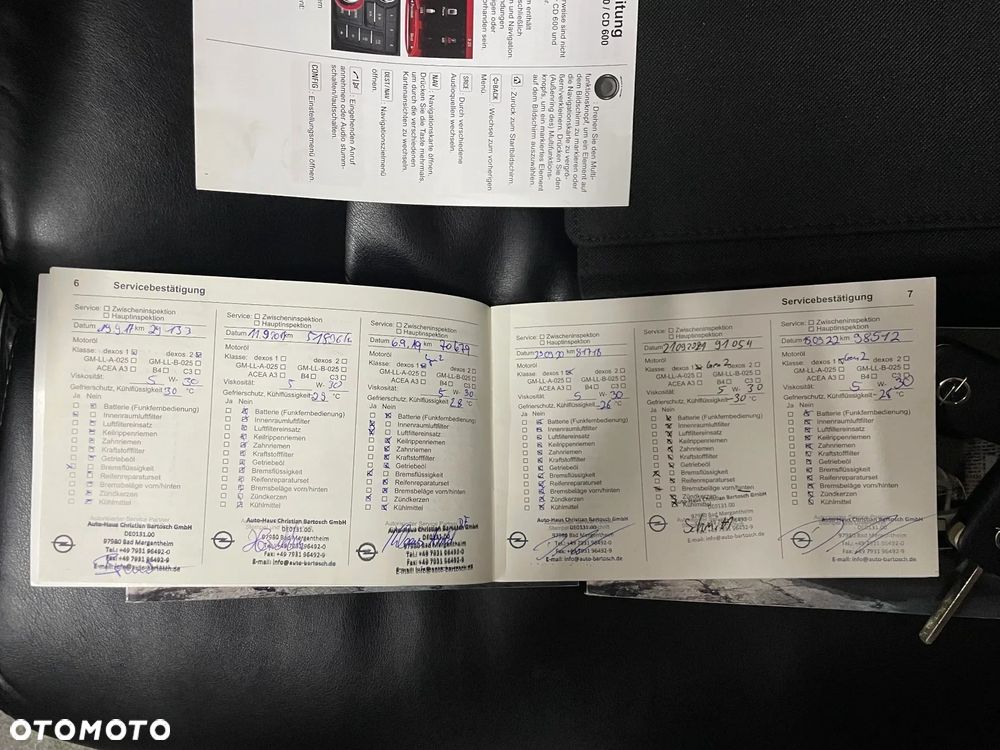 eitung
0 / CD 600
CD 600 und
: Drehen Sie den Multi-
funktionsknopf, um ein Element auf
dem Bildschirm zu markieren oder
die Navigationskarte zu vergrö-
ßern/verkleinern. Drücken Sie den
(Außenring des) Multifunktions-
knopfs, um ein markiertes Element
auf dem Bildschirm auszuwählen.
: Zurück zum Startbildschirm.
BACK : Wechsel zum vorherigen
Menü
SRCE : Durch verschiedene
Audioquellen wechseln.
NAV : Navigationskarte öffnen.
Drücken Sie die Taste mehrmals,
um durch die verschiedenen
Kartenansichten zu wechseln.
DEST/NAV : Navigationszielmenü
öffnen.
: Eingehenden Anruf
annehmen oder Audio stumm-
schalten/lautschalten.
CONFIG : Einstellungsmenü öffnen.
6 Servicebestätigung
Service: Zwischeninspektion
Hauptinspektion
Datum 19.9.17 km 29 133
Motoröl
Klasse: dexos 1 dexos 2
GM-LL-A-025 GM-LL-B-025
ACEA A3 B4 C3
Viskosität: 5 W- 30
Gefrierschutz, Kühlflüssigkeit -30 °C
Ja Nein
Batterie (Funkfernbedienung)
Innenraumluftfilter
Luftfiltereinsatz
Keilrippenriemen
Zahnriemen
Kraftstofffilter
Getriebeöl
Bremsflüssigkeit
Reifenreparaturset
Bremsbeläge vorn/hinten
Zündkerzen
Kühlmittel
Auto-Haus Christian Bartosch GmbH
DE0131.00
97980 Bad Mergentheim
Tel: +49 7931 96492-0
Fax: +49 7931 96492-0
E-mail: info@auto-bartosch.de
Service: Zwischeninspektion
Hauptinspektion
Datum km
Motoröl
Klasse: dexos 1 dexos 2
GM-LL-A-025 GM-LL-B-025
ACEA A3 B4 C3
Viskosität: 5 W- 30
Gefrierschutz, Kühlflüssigkeit °C
Ja Nein
Batterie (Funkfernbedienung)
Innenraumluftfilter
Luftfiltereinsatz
Keilrippenriemen
Zahnriemen
Kraftstofffilter
Getriebeöl
Bremsflüssigkeit
Reifenreparaturset
Bremsbeläge vorn/hinten
Zündkerzen
Kühlmittel
Auto-Haus Christian Bartosch GmbH
DE0131.00
97980 Bad Mergentheim
96492-0
Fax: +49 7931 96492-0
E-mail: info@auto-bartosch.de
Service: Zwischeninspektion
Hauptinspektion
Datum 6.9.19 km 70679
Motoröl
Klasse: dexos 1 dexos 2
GM-LL-A-025 GM-LL-B-025
ACEA A3 B4 C3
Viskosität: 5 W- 30
Gefrierschutz, Kühlflüssigkeit -28 °C
Ja Nein
Batterie (Funkfernbedienung)
Innenraumluftfilter
Luftfiltereinsatz
Keilrippenriemen
Zahnriemen
Kraftstofffilter
Getriebeöl
Bremsflüssigkeit
Reifenreparaturset
Bremsbeläge vorn/hinten
Zündkerzen
Kühlmittel
97980 Bad Mergentheim
Tel: +49 7931 96492-0
Fax: +49 7931 96492-0
E-mail: info@auto-bartosch.de
Servicebestätigung 7
Service: Zwischeninspektion
Hauptinspektion
Datum km
Motoröl
Klasse: dexos 1 dexos 2
GM-LL-A-025 GM-LL-B-025
ACEA A3 B4 C3
Viskosität: 5 W- 30
Gefrierschutz, Kühlflüssigkeit -26 °C
Ja Nein
Batterie (Funkfernbedienung)
Innenraumluftfilter
Luftfiltereinsatz
Keilrippenriemen
Zahnriemen
Kraftstofffilter
Getriebeöl
Bremsflüssigkeit
Reifenreparaturset
Bremsbeläge vorn/hinten
Zündkerzen
Kühlmittel
Auto-Haus Christian Bartosch GmbH
DE0131.00
97980 Bad Mergentheim
96492-0
Fax: +49 7931 96492-0
E-mail: info@auto-bartosch.de
Service: Zwischeninspektion
Hauptinspektion
Datum 21092021 91054
Motoröl
Klasse: dexos 1 Gen 2 dexos 2
GM-LL-A-025 GM-LL-B-025
ACEA A3 B4 C3
Viskosität: 5 W- 30
Gefrierschutz, Kühlflüssigkeit -30 °C
Ja Nein
Batterie (Funkfernbedienung)
Innenraumluftfilter
Luftfiltereinsatz
Keilrippenriemen
Zahnriemen
Kraftstofffilter
Getriebeöl
Bremsflüssigkeit
Reifenreparaturset
Bremsbeläge vorn/hinten
Zündkerzen
Kühlmittel
Auto-Haus Christian Bartosch GmbH
DE0131.00
97980 Bad Mergentheim
96492-0
Fax: +49 7931 96492-0
E-mail: info@auto-bartosch.de
Service: Zwischeninspektion
Hauptinspektion
Datum 150922 km 98512
Motoröl
Klasse: dexos 1 Gen 2 dexos 2
GM-LL-A-025 GM-LL-B-025
ACEA A3 B4 C3
Viskosität: 5 W- 30
Gefrierschutz, Kühlflüssigkeit -26 °C
Ja Nein
Batterie (Funkfernbedienung)
Innenraumluftfilter
Luftfiltereinsatz
Keilrippenriemen
Zahnriemen
Kraftstofffilter
Getriebeöl
Bremsflüssigkeit
Reifenreparaturset
Bremsbeläge vorn/hinten
Zündkerzen
Kühlmittel
Auto-Haus Christian Bartosch GmbH
DE0131.00
97980 Bad Mergentheim
Tel: +49 7931 96492-0
Fax: +49 7931 96492-0
E-mail: info@auto-bartosch.de
OTOMOTO